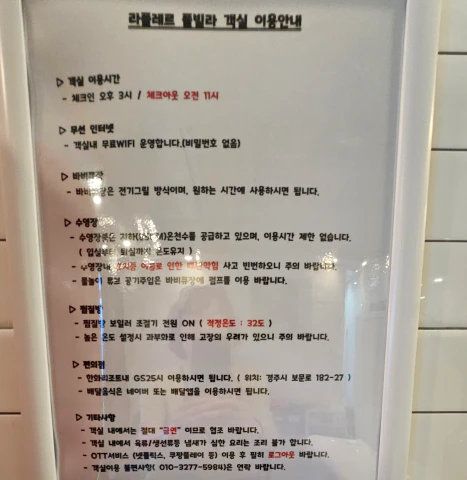 라플레르 풀빌라 객실 이용안내
▷ 객실 이용시간
- 체크인 오후 3시 / 체크아웃 오전 11시
▷ 무선 인터넷
- 객실내 무료WIFI 운영합니다.(비밀번호 없음)
▷ 바비큐장
- 바비큐장은 전기그릴 방식이며, 원하는 시간에 사용하시면 됩니다.
▷ 수영장
- 수영장 온천수를 공급하고 있으며, 이용시간 제한 없습니다.
( 입실부터 퇴실까지 온도유지 )
- 수영장내 인한 사고 빈번하오니 주의 바랍니다.
- 물놀이 튜브 공기주입은 바비큐장에 펌프를 이용 바랍니다.
▷ 찜질방
- 찜질방 보일러 조절기 전원 ON ( 적정온도 : 32도 )
- 높은 온도 설정시 과부화로 인해 고장의 우려가 있으니 주의 바랍니다.
▷ 편의점
- 한화리조트내 GS25시 이용하시면 됩니다. ( 위치: 경주시 보문로 182-27 )
- 배달음식은 네이버 또는 배달앱을 이용하시면 됩니다.
▷ 기타사항
- 객실 내에서는 절대 "금연" 이므로 협조 바랍니다.
- 객실 내에서 육류/생선류등 냄새가 심한 요리는 조리 불가 합니다.
- OTT서비스 (넷플릭스, 쿠팡플레이 등) 이용 후 필히 로그아웃 바랍니다.
- 객실이용 불편사항( 010-3277-5984)은 연락 바랍니다.